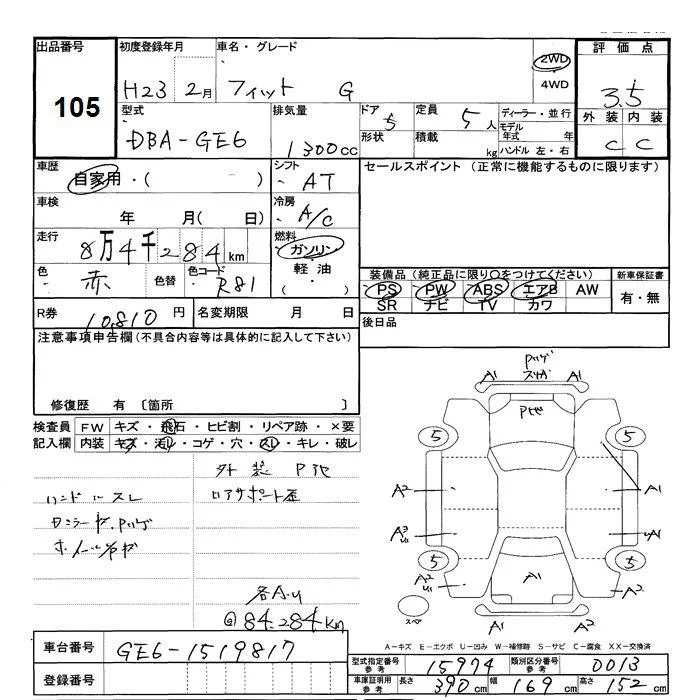 出品番号 105
初度登録年月 H23 2月
車名・グレード フィット G
2WD
4WD
評価点 3.5
外装 内装
C C
型式 DBA-GE6
排気量 1300cc
ドア 5
形状
定員 5人
積載 kg
ディーラー・並行
モデル年式 年
ハンドル 左・右
車歴 自家用・( )
シフト AT
セールスポイント (正常に機能するものに限ります)
車検 年 月( 日)
冷房 A/C
走行 8万4千284km
燃料 ガソリン
軽油
・( )
色 赤 色替 色コード R81
装備品 (純正品に限り○をつけてください)
新車保証書
PS PW ABS エアB AW
有・無
SR ナビ TV カワ
R券 10,810円
名変期限 月 日
後日品
注意事項申告欄 (不具合内容等は具体的に記入して下さい)
修復歴 有 〔箇所 〕
検査員 FW キズ・飛石・ヒビ割・リペア跡・×要
記入欄 内装 キズ・汚れ・コゲ・穴・スレ・キレ・破レ
外装
ハンドルスレ
リアサポート歪
ホイールキズ
各AU
84.284km
A1 A1
5 5
A2 A1
A3 U1
A1
5 5
A2 A1 A2
A2 A2
スペア
A-キズ E-エクボ U-凹み W-補修跡 S-サビ C-腐食 XX-交換済
車台番号 GE6-1519817
登録番号
型式指定番号 参考 15974
類別区分番号 参考 0013
車庫証明用 参考 長さ 390cm 幅 169cm 高さ 152cm